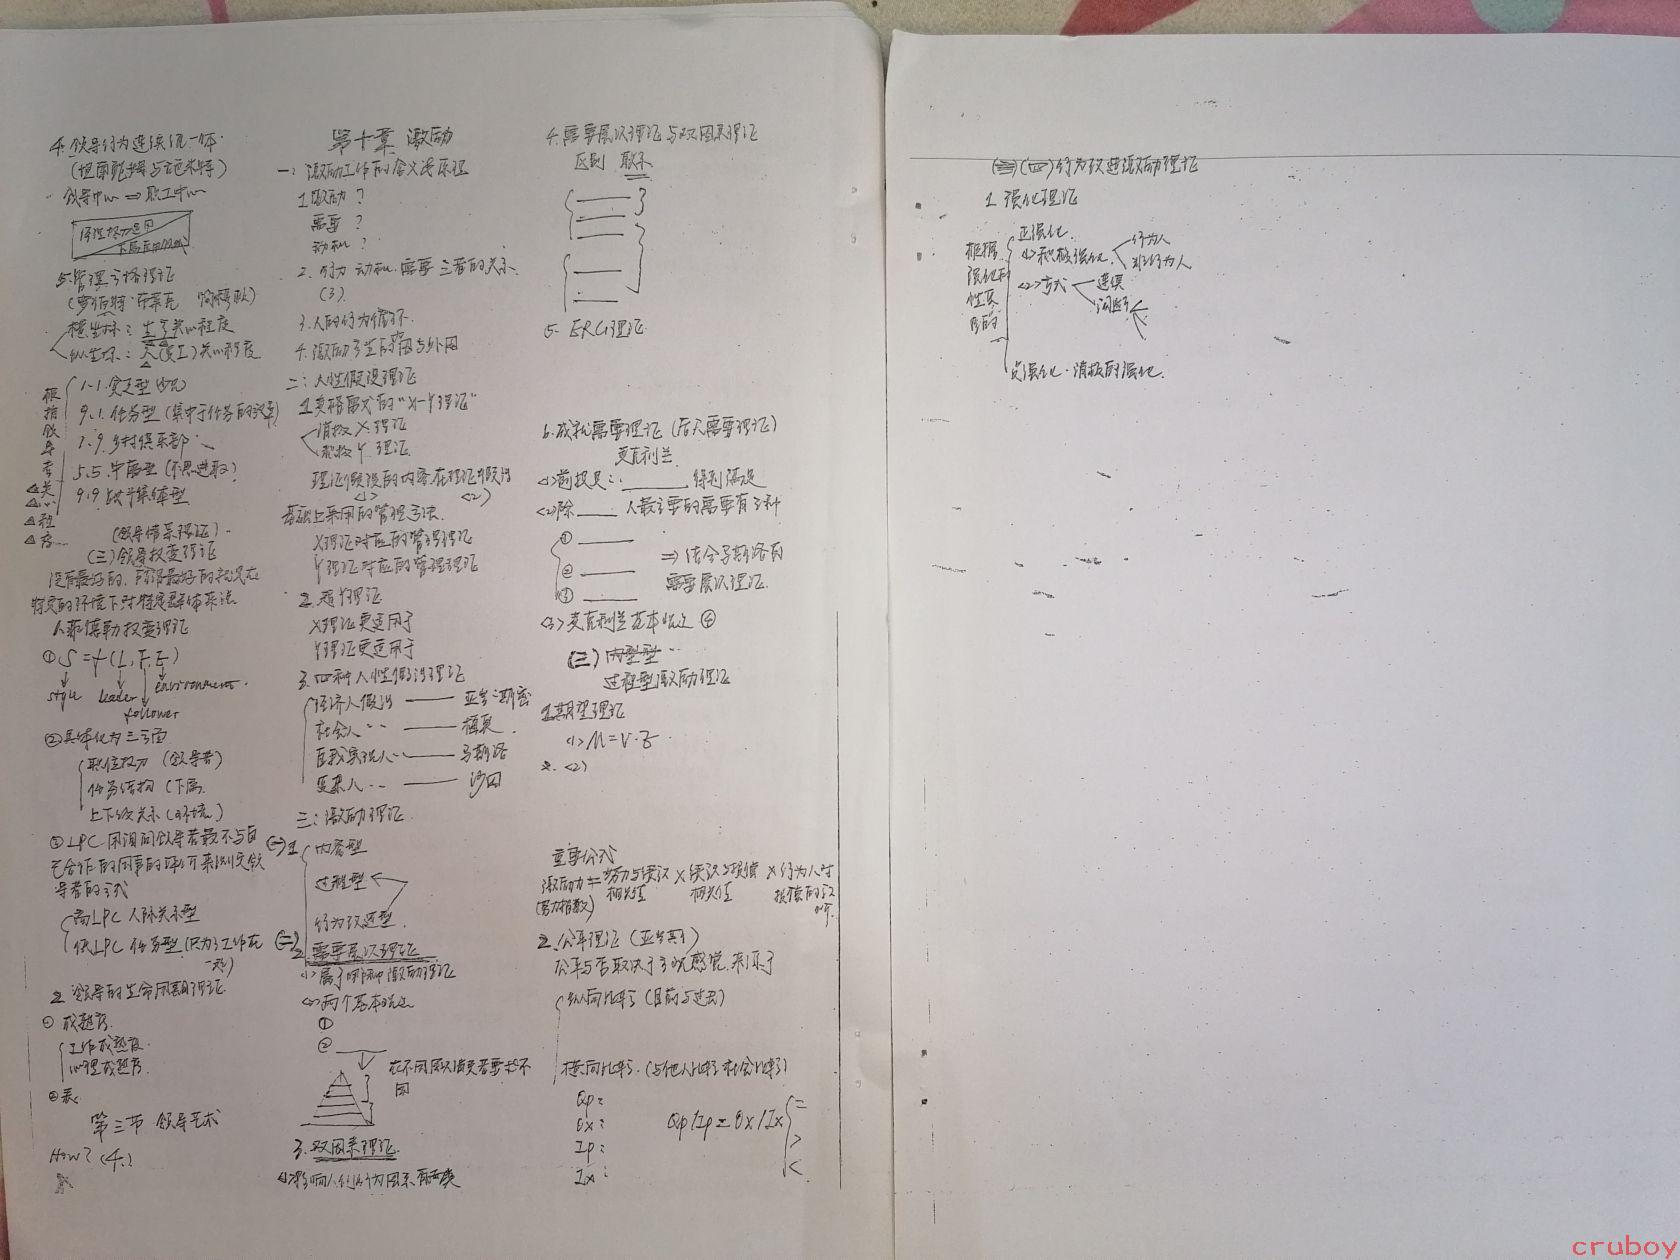 4. 领导行为连续统一体
(坦南鲍姆与施米特)
领导中心 ⇒ 职工中心
5. 管理方格理论
横坐标：生产关心程度
纵坐标：人(员工)关心程度
1.1.贫乏型
9.1.任务型 (集中于任务的效率)
1.9.乡村俱乐部
5.5.中庸型 (不思进取)
9.9
根据领导者关心程度
(领导情景理论)
(三)领导权变理论
没有最好的,
特定的环境下对特定群体来说
1.菲德勒权变理论
①S=f(L,F,E)
style leader environment
follower
②具体化为三方面
职位权力 (领导者)
任务结构 (下属
上下级关系 (环境)
③LPC 用询问领导者最不与自
己合作的同事的评价来测定领
导者的方式
高LPC 人际关系型
低LPC 任务型
2. 领导的生命周期理论
① 成熟度
工作成熟度
心理成熟度
②表
第三节 领导艺术
How? (4.)
第十章 激励
一：激励工作的含义及原理
1.激励？
需要？
动机？
2. 行为 动机.需要 三者的关系.
(3)
3.人的行为循环.
4.激励产生的内因与外因
二：人性假设理论
1.麦格雷戈的“X-Y理论”
消极X理论
积极Y理论
理论假设的内容.在理论假设
<1> <2>
基础上采用的管理方法.
X理论对应的管理理论
Y理论对应的管理理论
2. 超Y理论
X理论更适用于
Y理论更适用于
3.四种人性假设理论
经济人假设 —— 亚当·斯密
社会人 ·· —— 梅奥
自我实现人·· —— 马斯洛
复杂人 ·· —— 沙因
三：激励理论
(一)1. 内容型
过程型
行为改造型
(二)
2.需要层次理论
<1>属于哪种激励理论
<2>两个基本论点
①
②
在不同层次消费者要求不
同
3.双因素理论
<1>影响人们行为因素有两类
4.需要层次理论与双因素理论
区别 联系
5. ERG理论
6.成就需要理论 (后天需要理论)
麦克利兰
<1>前提是：______得到满足
<2>除____人最主要的需要有3种
① ____
② ____
③ ____
⇒结合马斯洛的
需要层次理论
<3>麦克利兰基本论点 ④
(三)
过程型激励理论
1.期望理论
<1>M=V·E
2. <2>
重要公式
激励力 = 努力与绩效 × 绩效与报偿 × 行为人对
(努力指数) 相关值 相关值 报偿的评价
2.公平理论 (亚当斯)
公平与否取决于主观感觉.来源于
纵向比较 (目前与过去)
横向比较 (与他人比较 社会比较)
Qp：
Qx：
Ip：
Ix：
Qp/Ip=Qx/Ix
=
>
<
(四)行为改造激励理论
1. 强化理论
根据强化的性质目的
正强化
<1>积极强化
行为人
非行为人
<2>方式
连续
间断
负强化·消极的强化
cruboy